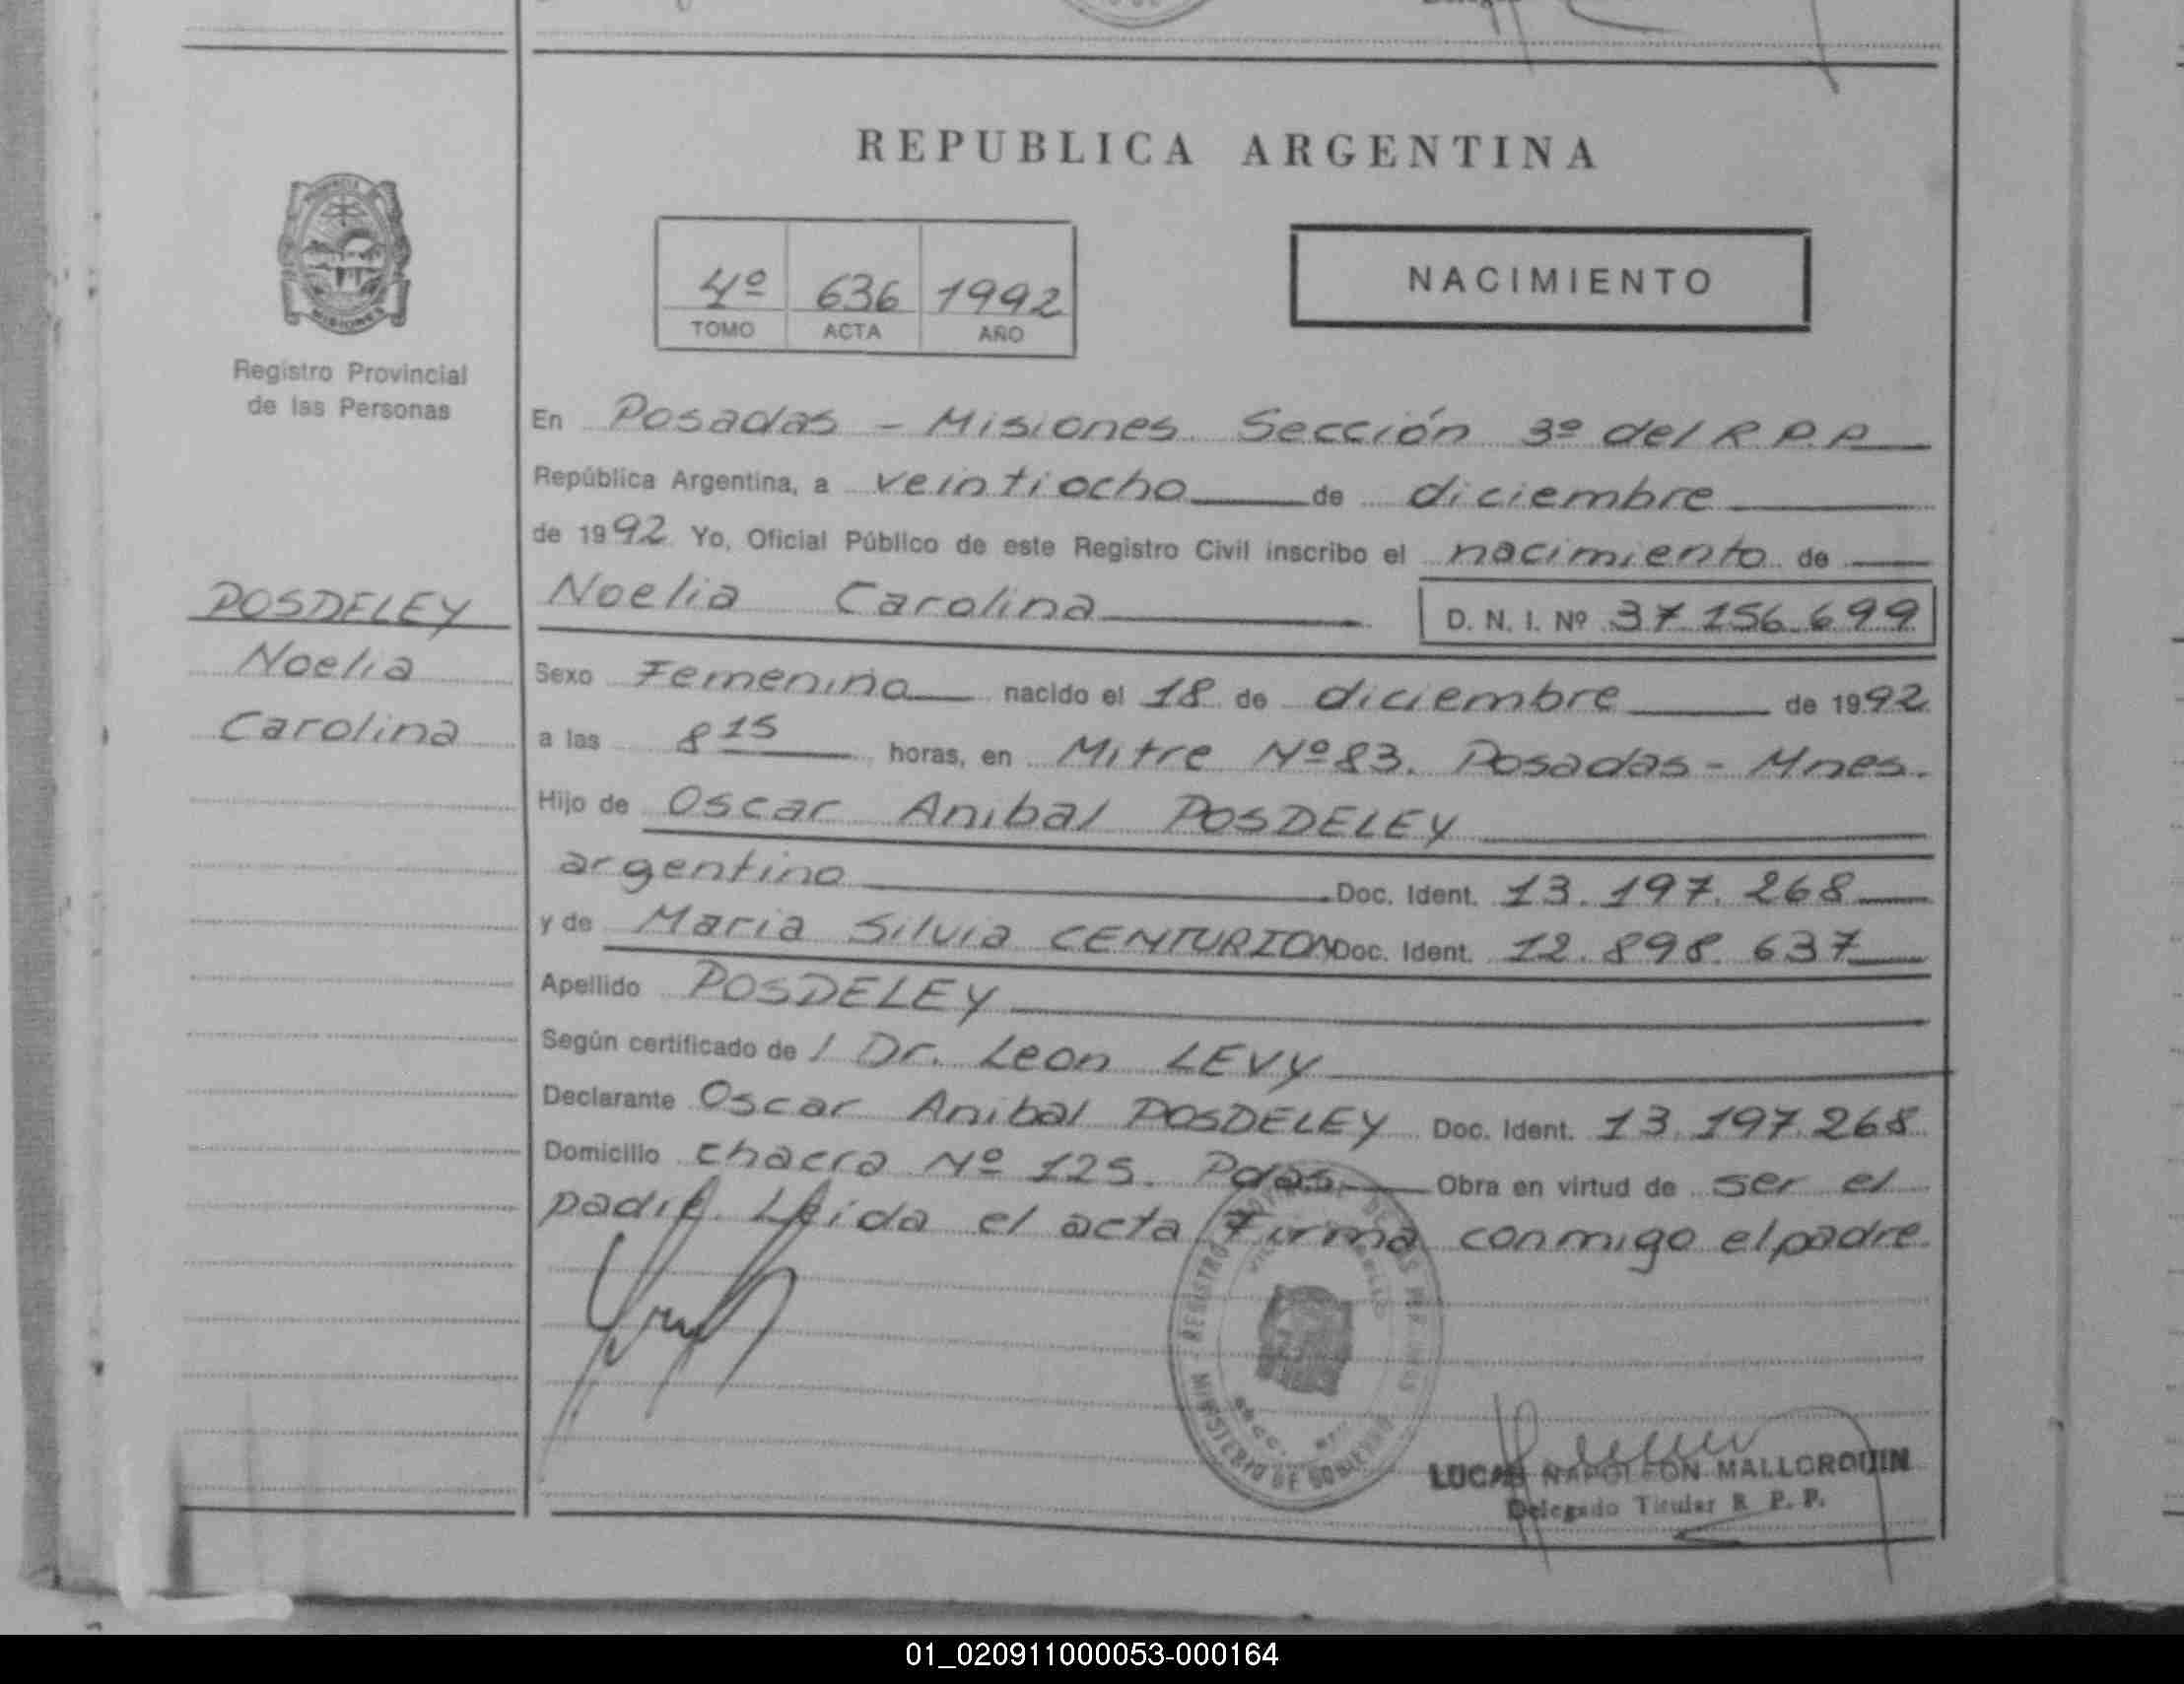 REPUBLICA ARGENTINA
4º 636 1992
TOMO ACTA AÑO
NACIMIENTO
MISIONES
Registro Provincial
de las Personas
POSDELEY
Noelia
Carolina
En Posadas - Misiones. Sección 3º del R.P.P
República Argentina, a veintiocho de diciembre
de 1992 Yo, Oficial Público de este Registro Civil inscribo el nacimiento de
Noelia Carolina D. N. I. Nº 37 156 699
Sexo Femenina nacido el 18 de diciembre de 1992
a las 8 15 horas, en Mitre Nº 83. Posadas - Mnes.
Hijo de Oscar Anibal POSDELEY
argentino Doc. Ident. 13.197.268
y de Maria Silvia CENTURION Doc. Ident. 12.898.637
Apellido POSDELEY
Según certificado de / Dr. Leon LEVY
Declarante Oscar Anibal POSDELEY Doc. Ident. 13.197.268
Domicilio chacra Nº 125. Pdas. Obra en virtud de ser el
padre. Leida el acta firma conmigo el padre.
REGISTRO DE LAS PERSONAS
MINISTERIO DE GOBIERNO
LUCAS NAPOLEON MALLORQUIN
Delegado Titular R. P. P.
01_020911000053-000164